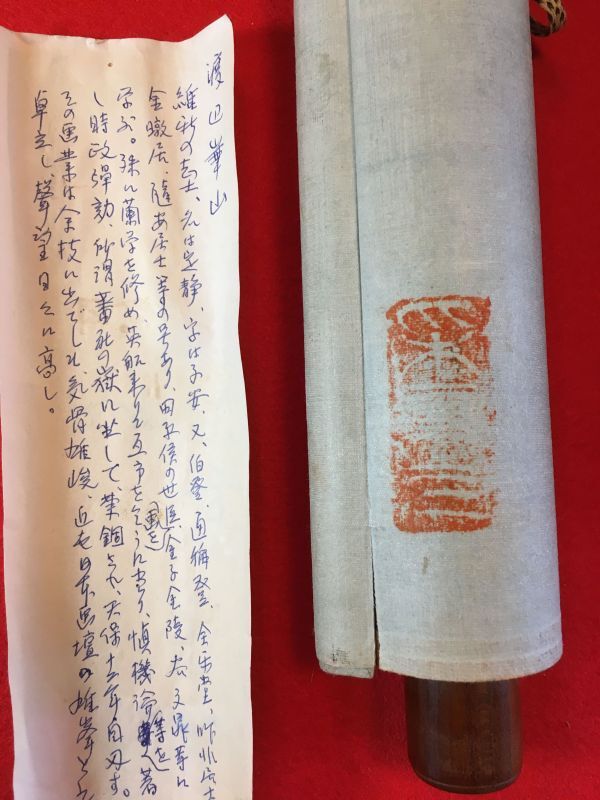 渡辺崋山
維新の志士、名は定静、字は子安、又、伯登、通称登、全楽堂、昨非居士
金暾居、随安居士等の号あり、田原侯の世臣、金子金陵、谷文晁等に
学ぶ。殊に蘭学を修め、英船来りて互市を乞うに当り、慎機論等を著
し時政弾劾、所謂蛮社の獄に坐して、禁錮され、天保十二年自刃す。
その画業は余技に出でしも、気骨雄峻、近世日本画壇の雄峯として
卓立し、聲望日々に高し。